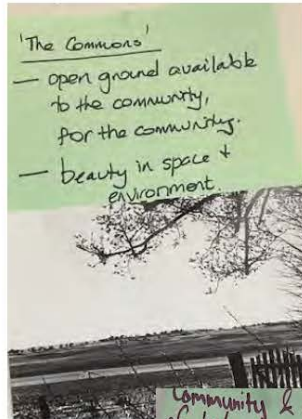 'The Commons'
— open ground available
to the community,
for the community.
— beauty in space +
environment.
Community &